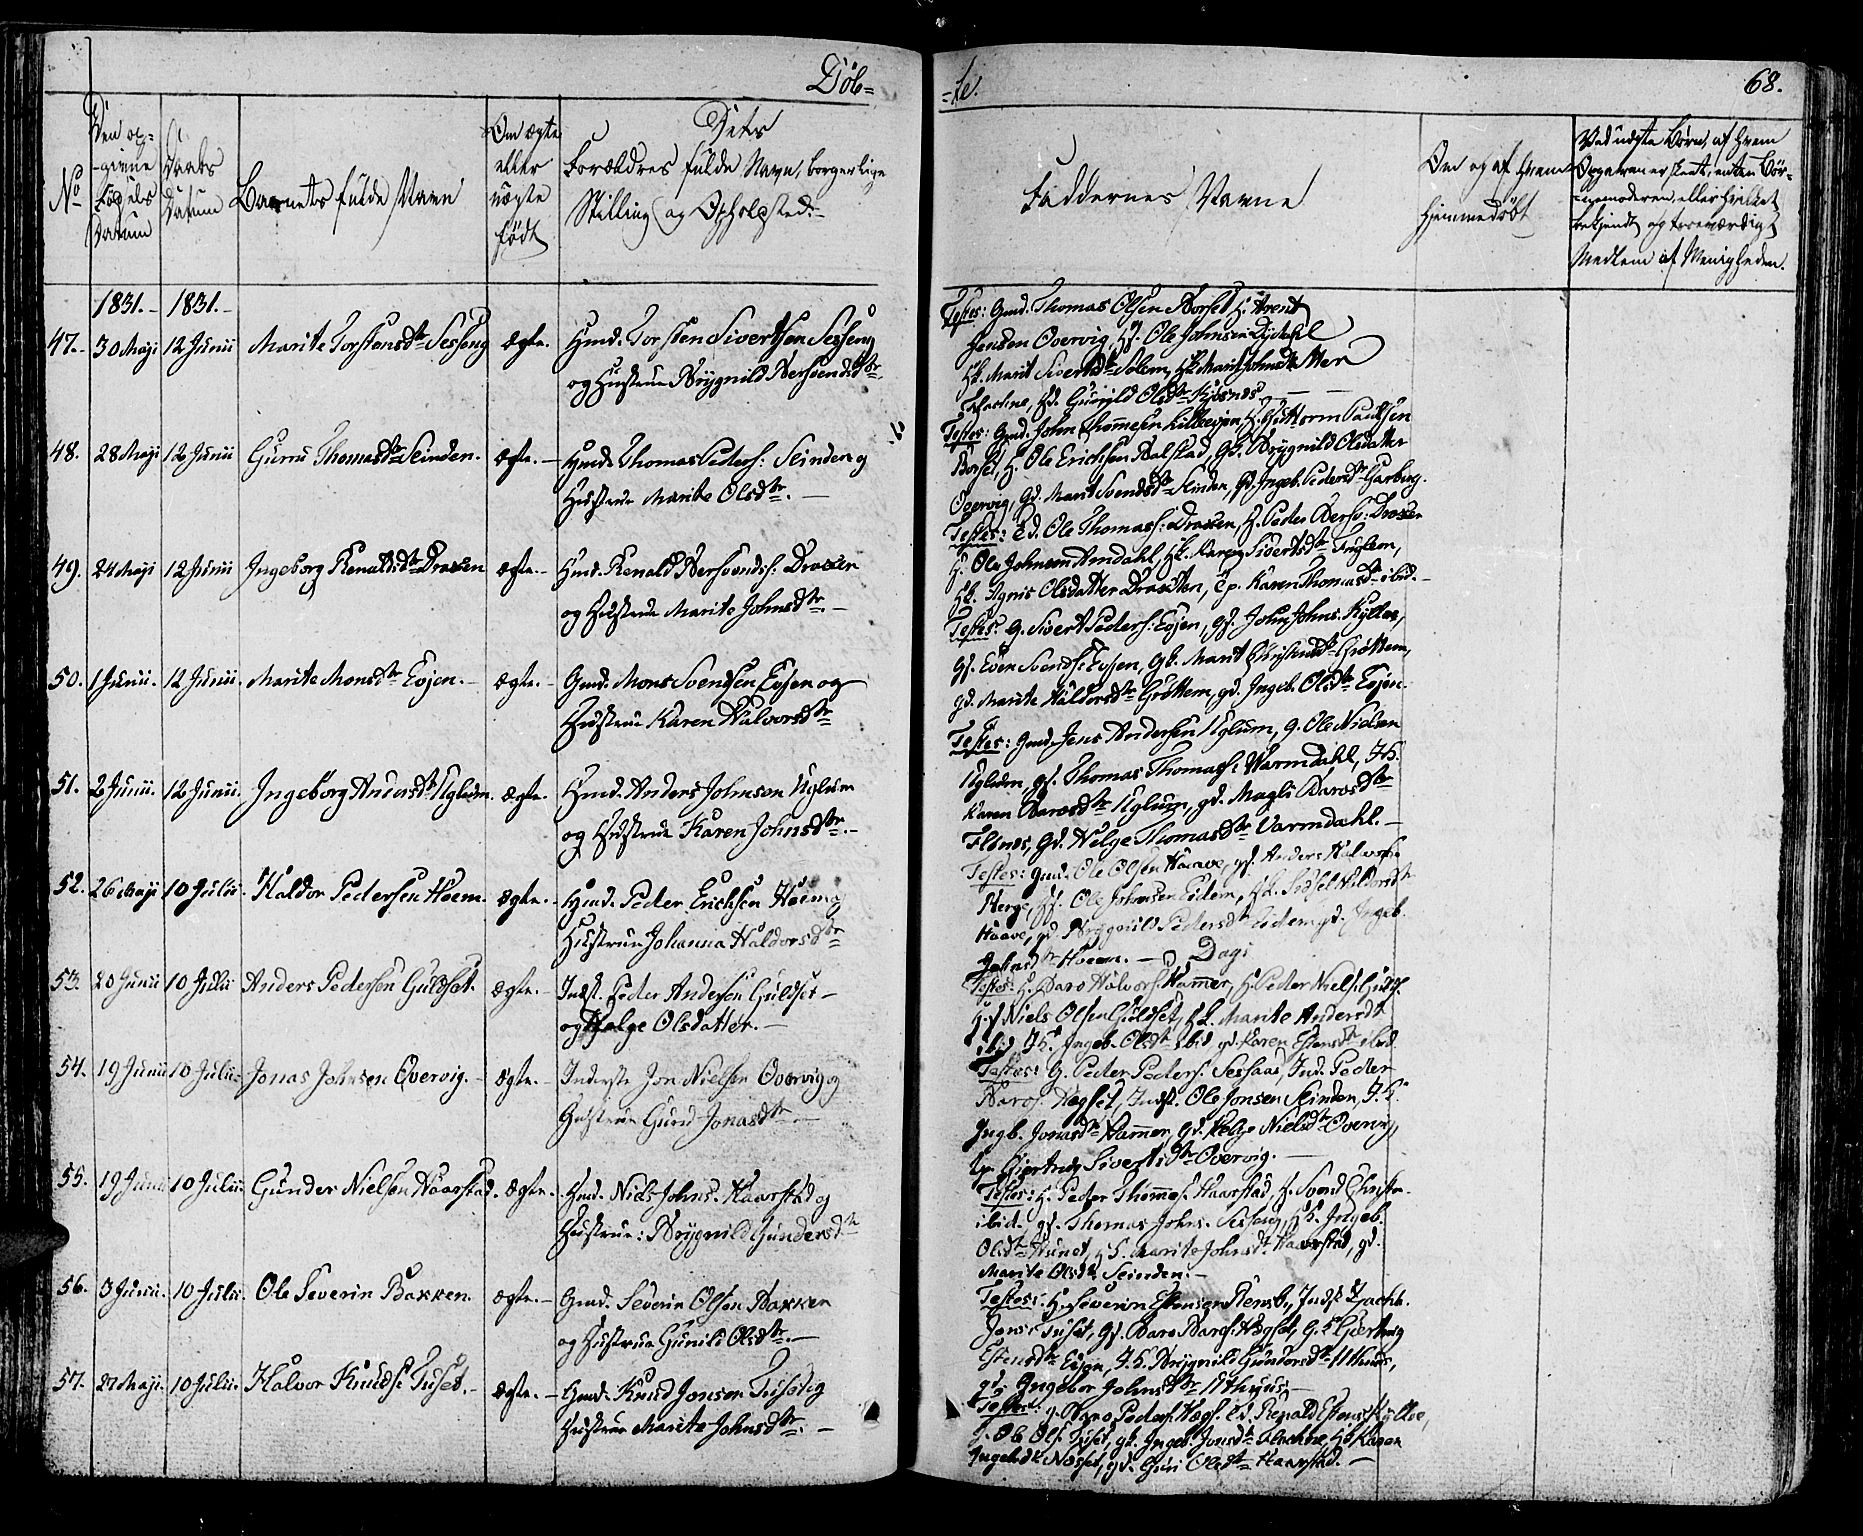 Döb=
=te.
68.
No
Den op=
=givne
Födsels
Datum
Daabs
Datum
Barnets fulde Navn
Om ægte
eller
uægte
født
Dets
Forældres fulde Navn, borgerlige
Stilling og Opholdsted.
Faddernes Navne
Om og af hvem
hjemmedöbt
Ved uægte Börn, af hvem
Opgaven er skeet, enten Bör=
=nemoderen, eller hvilket
bekjendt og troeværdigt
Medlem af Menigheden.
1831. 1831.
47. 30 Maji 12 Junii Marite Torstensdtr Sesseng ægte. Hmd. Torsten Sivertsen Sesseng
og Hustrue Brÿgnild Bersvendsdtr.
Testes: Gmd. Thomas Olsen Borset, H. Arent
Jensen Overvig, Hf. Ole Johnsen
Hk. Marit Sivertsdtr Solem, Hk. Marit Johnsdatter
Gd. Gunild Olsdtr Kjösnes
48. 28 Maji 12 Junii Guru Thomasdtr Selnden. ægte. Hmd. Thomas Peders: Selnden og
Hustrue Marite Olsdtr.
Testes: Gmd. John Thommesen Lillevjen, H. Guttorm Paulsen
Borset, H. Ole Erichsen Balstad, Gk. Brÿgnild Olsdatter
Overvig, Gd. Marit Svendsdtr Selnden, Gd. Ingeb. Pedersdtr Garberg.
49. 24 Maji 12 Junii Ingeborg Renaldsdtr Draxen ægte. Hmd. Renald Bersvends: Draxen
og Hustrue Marite Johnsdtr.
Testes: Ed. Ole Thomas: Draxen, H. Peder Bersv: Draxen
H. Ole Johnsen Amdahl, Hk. Karen Sivertsdtr Fuglem,
Hk. Agnis Olsdatter Draxten, Ep. Karen Thomasdtr ibid.
50. 1 Junii. 12 Junii. Marite Monsdtr Evjen. ægte. Gmd. Mons Svendsen Evjen og
Hustrue Karen Halvorsdtr
Testes: G. Sivert Peders: Evjen, gf. John Johns. Kÿlloe,
gf. Even Svends: Evjen, Gk. Marit Christensdtr Gröttem,
gd. Marite Haldorsdtr Gröttem, gd. Ingeb. Olsdtr Evjen.
51. 2 Junii. 12 Junii. Ingeborg Andersdtr Uglem. ægte. Hmd. Anders Johnsen Uglum
og Hustrue Karen Johnsdtr.
Testes: Gmd. Jens Andersen Uglum, G. Ole Nielsen
Uglum, gf. Thomas Thomas: Warmdahl, Hk.
Karen Baroesdtr Uglum, gd. Magli Baroesdtr
Flönes, Gd. Helge Thomasdtr Varmdahl.
52. 26 Maji 10 Julii. Haldor Pedersen Hoem. ægte. Hmd. Peder Erichsen Hoem og
Hustrue Johanna Haldorsdtr
Testes: Gmd. Ole Olsen Haave, gf. Anders Halvorsen
Berge, Hf. Ole Johnsen Eidem, Hk. Sidsel Haldorsdtr
Haave, gd. Brÿgnild Pedersdtr Eidem, gd. Ingeb.
Johnsdtr Hoem.
53. 20 Junii 10 Julii Anders Pedersen Guldset. ægte. Indst. Peder Andersen Guldset
og Helge Olsdatter.
Testes: H. Baro Halvors: Hammer, H. Peder Niels:
gf. Niels Olsen Guldset, Hk. Marite Andersdtr
ibid, Hk. Ingeb. Olsdtr ibid, gd. Karen Estensdtr ibid
54. 19 Junii 10 Julii Jonas Johnsen Overvig. ægte. Inderste Jon Nielsen Overvig og
Hustrue Guru Jonasdtr
Testes: G. Peder Peders: Sessaas, Ind. Peder
Baros: Hegset, Indst. Ole Jonsen Selnden, I.k.
Ingb. Jonasdtr Hammer, gd. Helge Nielsdtr Overvig,
Ep. Gjertrud Sivertsdtr Overvig.
55. 19 Junii 10 Julii Gunder Nielsen Haarstad. ægte. Hmd. Niels Johns. Haarstad og
Hustrue: Brÿgnild Gundersdtr
Testes: H. Peder Thommes: Haarstad, H. Svend Christen.
ibid., gf. Thomas Johns. Sesseng, Hk. Ingeb.
Olsdtr Hunet, Hk. Marite Johnsdtr Haarstad, gd.
Marite Olsdtr Selnden.
56. 3 Junii. 10 Julii. Ole Severin Bakken. ægte. Gmd. Severin Olsen Bakken
og Hustrue Gunild Olsdtr.
Testes: H. Severin Estensen Rensb., Indst. Zachk.
Jons: Tuset, Gf. Baro Baros: Hegset, G.k. Gjertrug
Estensdtr Evjen, Hk. Brÿgnild Gundersdtr Uthuus,
gd. Ingebor Johnsdtr Uthuus.
57. 27 Maji. 10 Julii. Halvor Knuds: Tuset. ægte. Hmd. Knud Jonsen Tuset og
Hustrue Marite Johnsdtr.
Testes: g. Baro Peders: Hegs. Ed. Renald Estens: Kÿlloe,
Ole Ols. Tuset, gk. Ingeb. Jonsdtr Flackne, Hk. Karen
Ingebdtr Næsset, gd. Guri Olsdtr Haarstad.